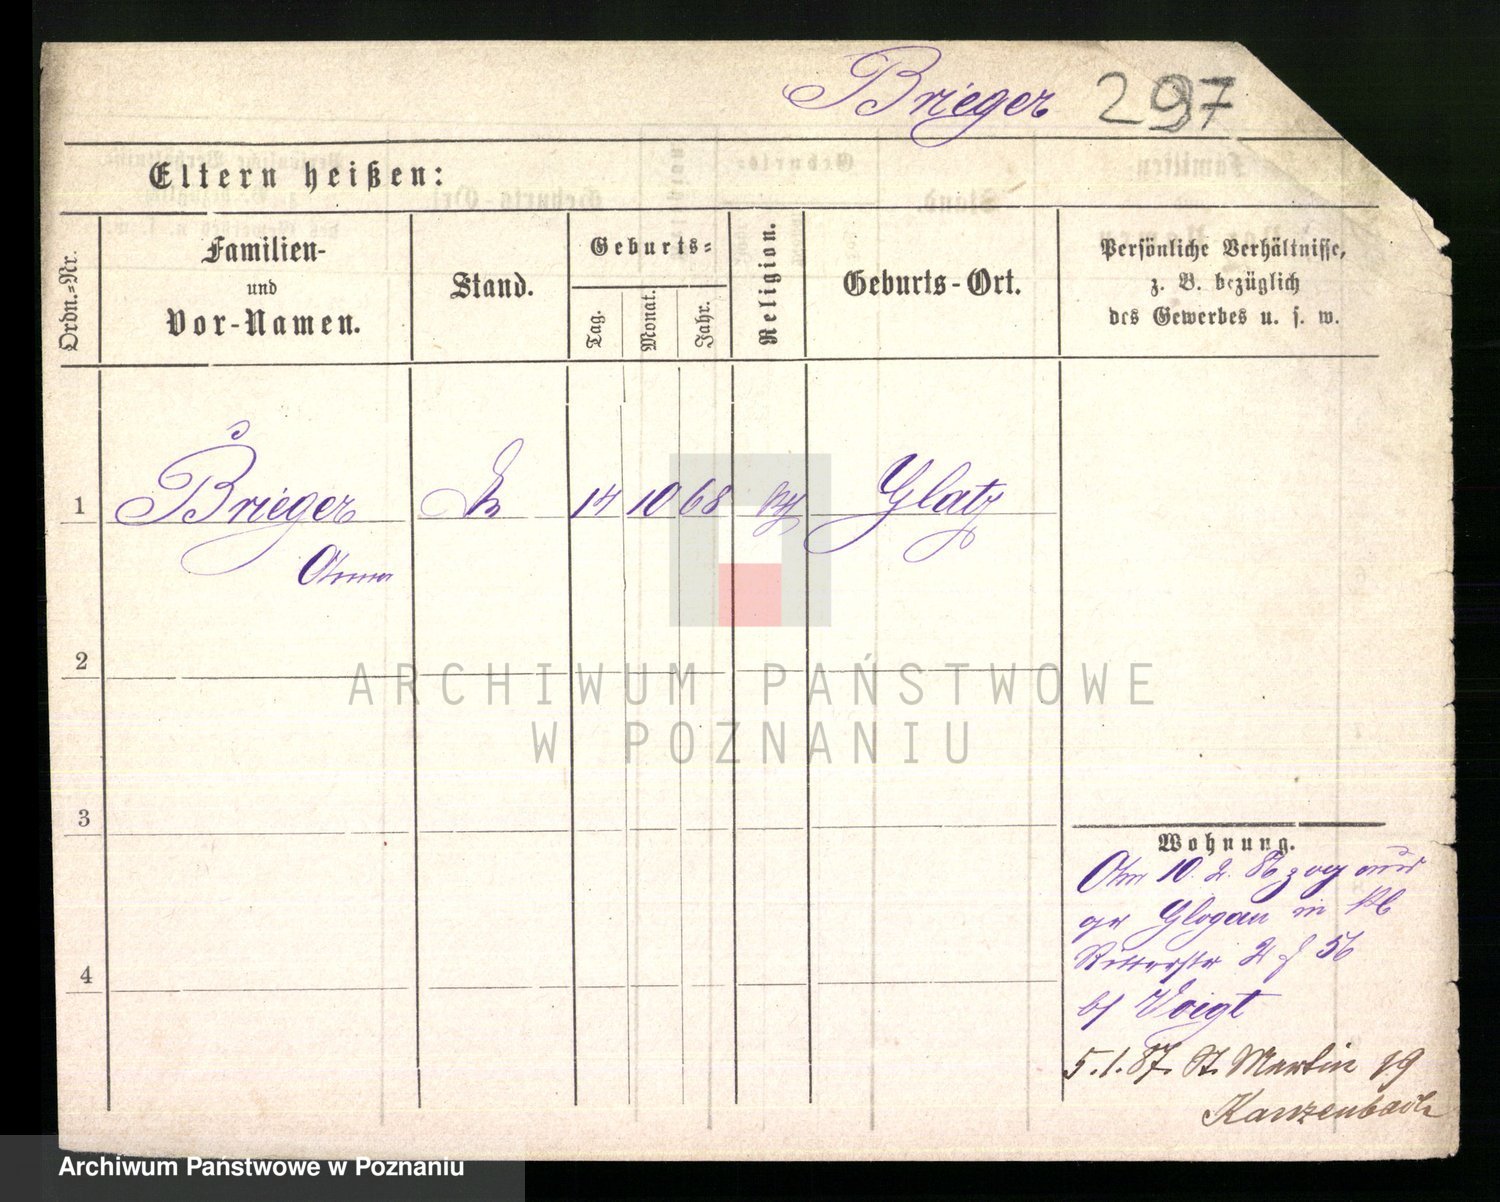 Brieger 297
Eltern heißen:
Ordn.=Nr.
Familien-
und
Vor-Namen.
Stand.
Geburts=
Tag.
Monat.
Jahr.
Religion.
Geburts-Ort.
Persönliche Verhältnisse,
z. B. bezüglich
des Gewerbes u. s. w.
1 Brieger 14 10 68 Glatz
Anna
2
3
4
Wohnung.
Am 10. 2. 86 zog
Glogau in
Ritterstr 2
bei Voigt
5.1.87. St. Martin 19
Kanzenbach
ARCHIWUM PAŃSTWOWE
W POZNANIU
Archiwum Państwowe w Poznaniu